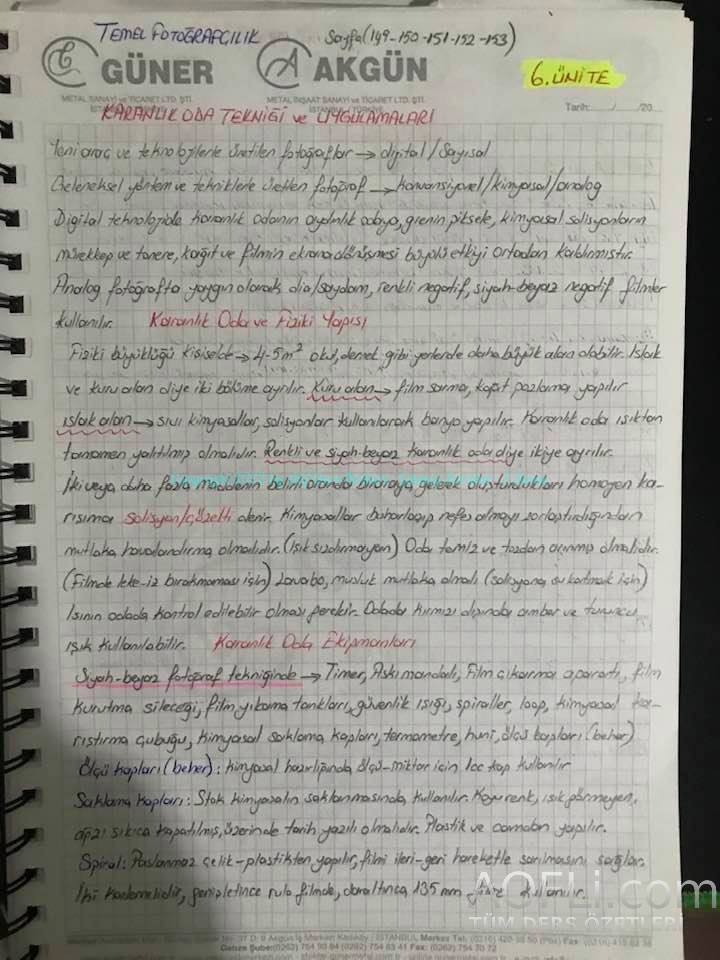 TEMEL FOTOĞRAFÇILIK
Sayfa (149-150-151-152-153)
GÜNER
METAL SANAYİ ve TİCARET LTD. ŞTİ.
İSTANBUL / TÜRKİYE
AKGÜN
METAL İNŞAAT SANAYİ ve TİCARET LTD. ŞTİ.
İSTANBUL / TÜRKİYE
6. ÜNİTE
Tarih:....../....../20....
KARANLIK ODA TEKNİĞİ ve UYGULAMALARI
Yeni araç ve teknolojilerle üretilen fotoğraflar → dijital / Sayısal
Geleneksel yöntem ve tekniklerle üretilen fotoğraf → konvansiyonel / kimyasal / analog
Digital teknolojide karanlık odanın aydınlık odaya, grenin piksele, kimyasal solisyonların
mürekkep ve tonere, kağıt ve filmin ekrana dönüşmesi büyülü etkiyi ortadan kaldırmıştır.
Analog fotoğrafta yaygın olarak dia/saydam, renkli negatif, siyah-beyaz negatif filmler
kullanılır. Karanlık Oda ve Fiziki Yapısı
Fiziki büyüklüğü kişiselde → 4-5 m² okul, dernek gibi yerlerde daha büyük alan olabilir. Islak
ve kuru alan diye iki bölüme ayrılır. Kuru alan → film sarma, kağıt pozlama yapılır
ıslak alan → sıvı kimyasallar, solisyonlar kullanılarak banyo yapılır. Karanlık oda ışıktan
tamamen yalıtılmış olmalıdır. Renkli ve siyah-beyaz karanlık oda diye ikiye ayrılır.
İki veya daha fazla maddenin belirli oranda biraraya gelerek oluşturdukları homojen ka-
rışıma solisyon/çözelti denir. Kimyasallar buharlaşıp nefes almayı zorlaştırdığından
mutlaka havalandırma olmalıdır. (Işık sızdırmayan) Oda temiz ve tozdan arınmış olmalıdır.
(Filmde leke-iz bırakmaması için) Lavabo, musluk mutlaka olmalı (solisyona su katmak için)
Isının odada kontrol edilebilir olması gerekir. Odada kırmızı dışında amber ve turuncu
ışık kullanılabilir. Karanlık Oda Ekipmanları
Siyah-beyaz fotoğraf tekniğinde → Timer, Askı mandalı, Film çıkarma aparatı, film
kurutma sileceği, film yıkama tankları, güvenlik ışığı, spiraller, loop, kimyasal ka-
rıştırma çubuğu, kimyasal saklama kapları, termometre, huni, ölçü kapları (beher)
Ölçü kapları (beher): kimyasal hazırlığında ölçü-miktar için 1cc kap kullanılır
Saklama Kapları: Stok kimyasalın saklanmasında kullanılır. Koyu renk, ışık görmeyen,
ağzı sıkıca kapatılmış, üzerinde tarih yazılı olmalıdır. Plastik ve camdan yapılır.
Spiral: Paslanmaz çelik-plastikten yapılır, filmi ileri-geri hareketle sarılmasını sağlar.
İki kademelidir, genişletince rulo filmde, daraltınca 135 mm filmde kullanılır.
AOFLi.com
TÜM DERS ÖZETLERİ